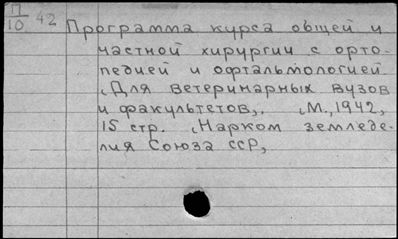 11/10 42
Программа курса общей и
частной хирургии с орто-
педией и офтальмологией
„Для ветеринарных вузов
и факультетов„. „М., 1942,
15 стр. „Нарком земледе-
лия Союза ССР„